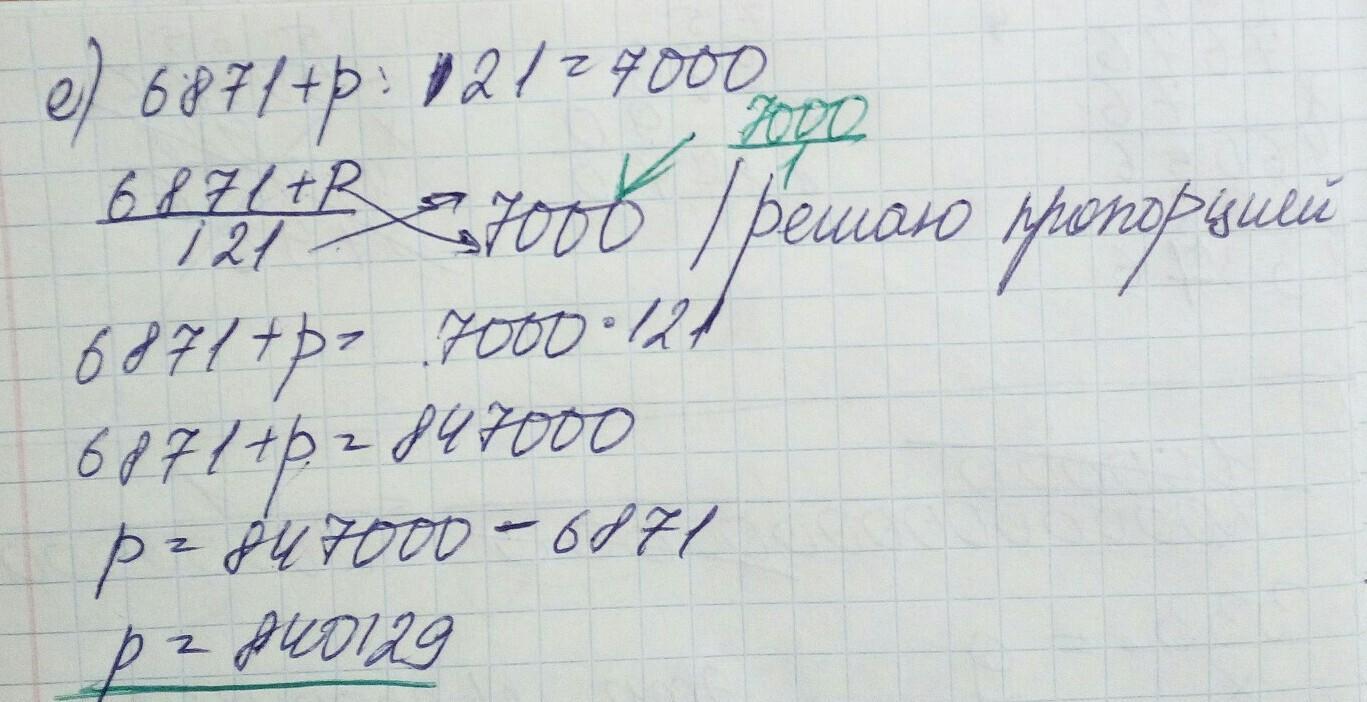 е) 6871+p : 121=7000
7000
1
6871+p
121
7000 / решаю пропорцией
6871+p= 7000·121
6871+p=847000
p=847000-6871
p=840129